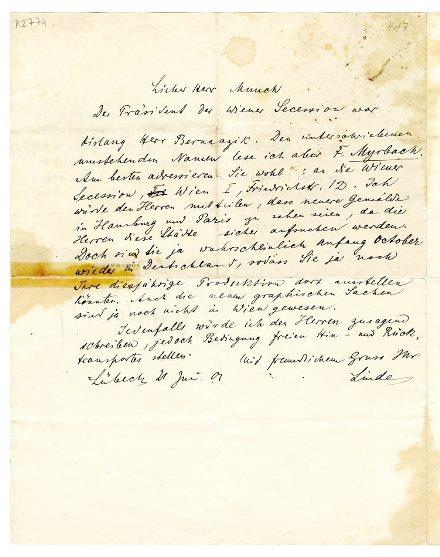 K2774
Lieber Herr Munch
Der Präsident der Wiener Secession war
bislang Herr Bernatzik. Den unterschriebenen
umstehenden Namen lese ich aber F. Myrbach.
Am besten adressieren Sie wohl: an die Wiener
Secession, Wien I, Friedrichstr. 12. Ich
würde den Herren mitteilen, dass neuere Gemälde
in Hamburg und Paris zu sehen seien, da die
Herren diese Städte sicher aufsuchen werden.
Doch sind Sie ja wahrscheinlich anfang October
wieder in Deutschland, sodass Sie ja noch
Ihre diesjährige Produktion dort ausstellen
könnten. Auch die neuen graphischen Sachen
sind ja noch nicht in Wien gewesen.
Jedenfalls würde ich den Herren zusagend
schreiben, jedoch Bedingung freien Hin- und Rück-
transportes stellen.
Mit freundlichem Gruss Ihr
Lübeck 20 Juni
Linde